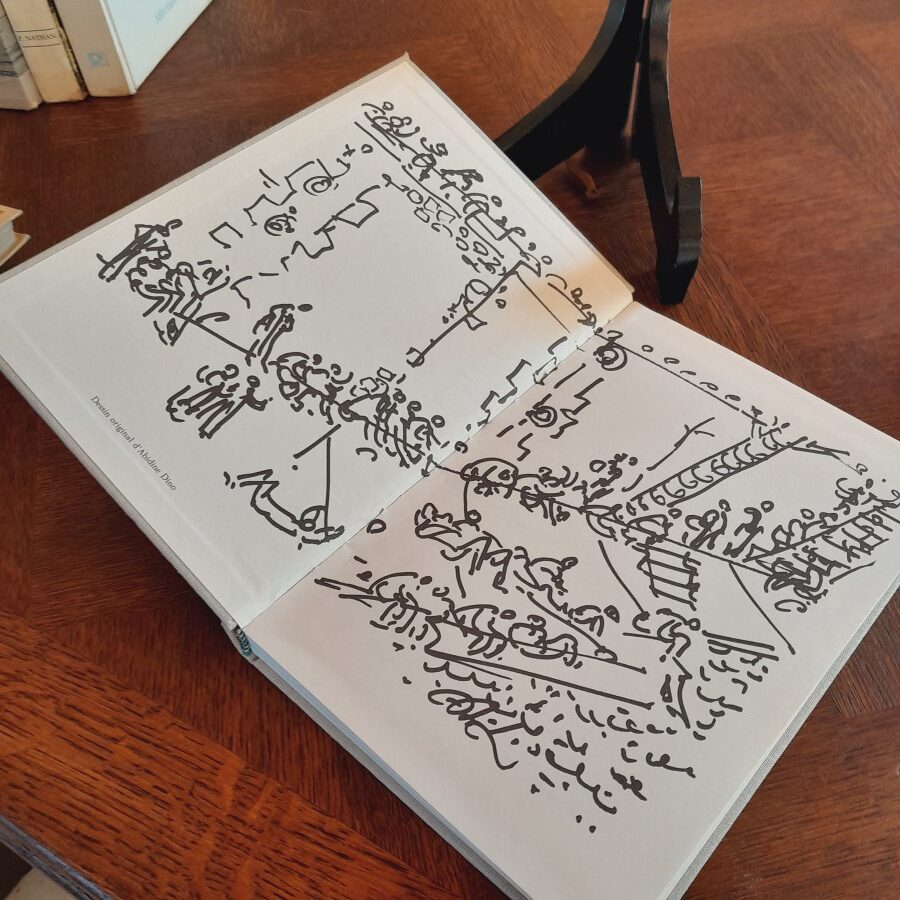 F. NATHAN
Dessin original d'Abidine Dino